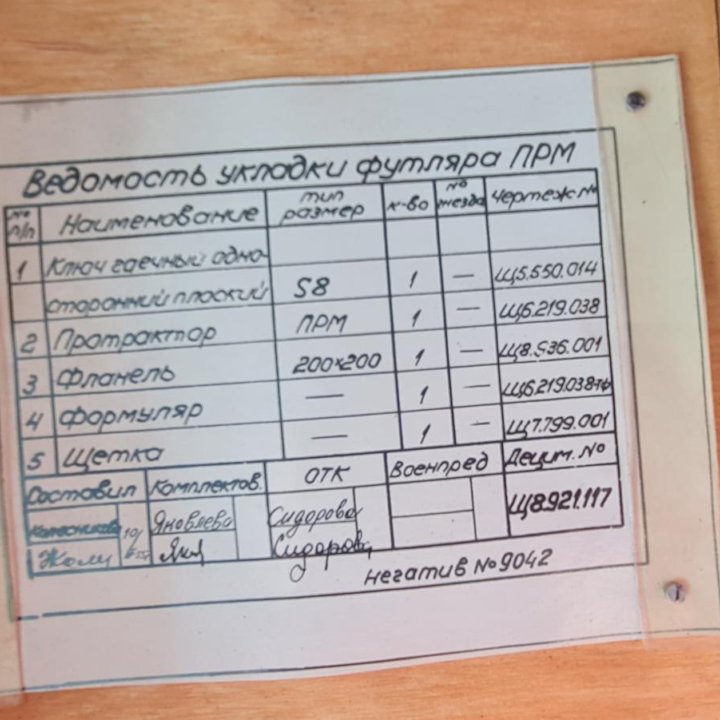 Ведомость укладки футляра ПРМ
№ п/п Наименование тип размер к-во № гнезда Чертеж №
1 Ключ гаечный одно-
сторонний плоский S8 1 — Щ5.550.014
2 Протрактор ПРМ 1 — Щ6.219.038
3 Фланель 200×200 1 — Щ8.536.001
4 Формуляр — 1 — Щ6.219.038
5 Щетка — 1 — Щ7.799.001
Составил Комплектов. ОТК Военпред Децим. №
Яновлева Сидорова Щ8.921.117
Сидорова
Негатив №9042